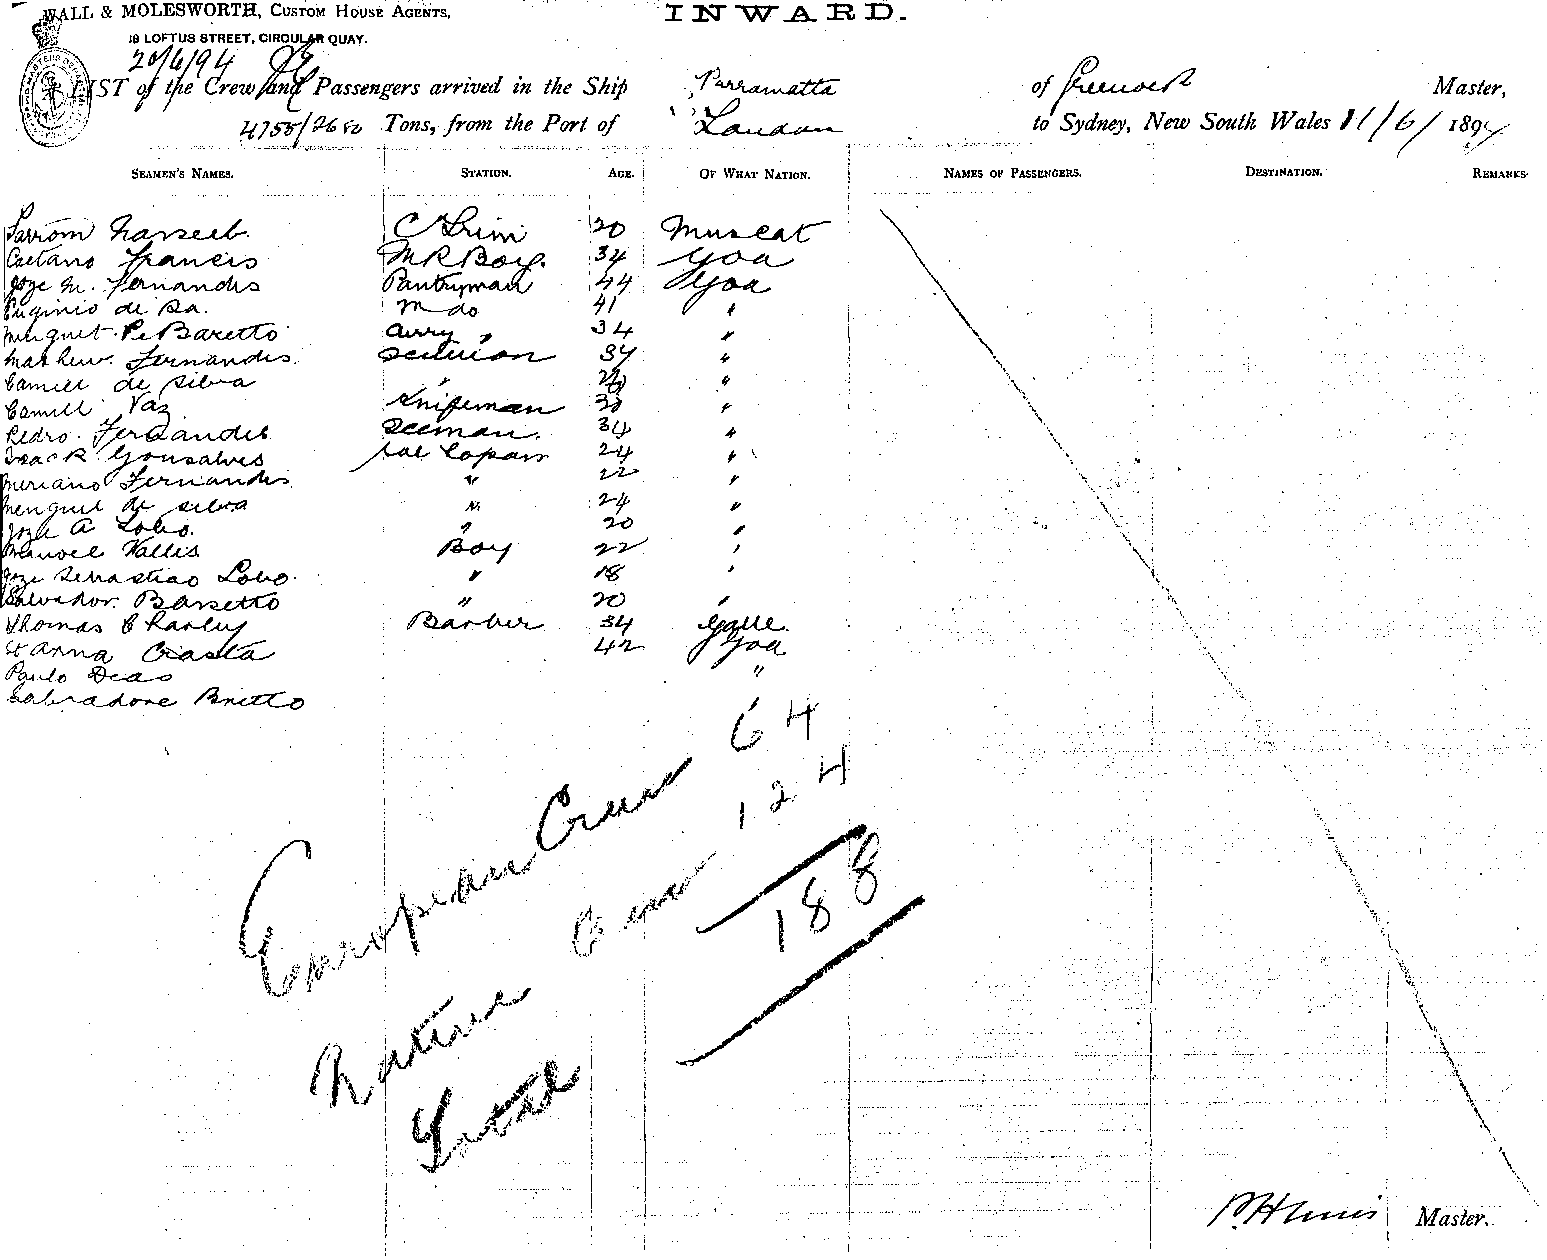 WALL & MOLESWORTH, CUSTOM HOUSE AGENTS, INWARD.
18 LOFTUS STREET, CIRCULAR QUAY.
20/6/94
LIST of the Crew and Passengers arrived in the Ship Parramatta of Greenock Master,
4755/2650 Tons, from the Port of London to Sydney, New South Wales 11/6/1894
SEAMEN'S NAMES. STATION. AGE. OF WHAT NATION. NAMES OF PASSENGERS. DESTINATION. REMARKS.
Narseeb C Trim 20 Muscat
Caetano Francis M R Boy. 34 Goa
Joze M. Fernandis Pantryman 44 Goa
Euginio de Sa. do 41 "
Menguel Pe Baretto " 34 "
Mathew Fernandis 34 "
Camill de Silva " "
Camill Vaz Knifeman "
Pedro Fernandis 34 "
Isack Gonsalves 24 "
Meriano Fernandis " 22 "
Menguel de Silva " 24 "
Joze A Lobo. " 20 "
Manoel Vallis Boy 22 "
Joze Sebastiao Lobo. " 18 "
Salvador Barretto " 20 "
Thomas Charley Barber 34 Galle
St Anna Crasta 42 Goa
Paulo Deas "
Salvadore Britto "
European Crew 64
Native Crew 124
Total 188
Master.